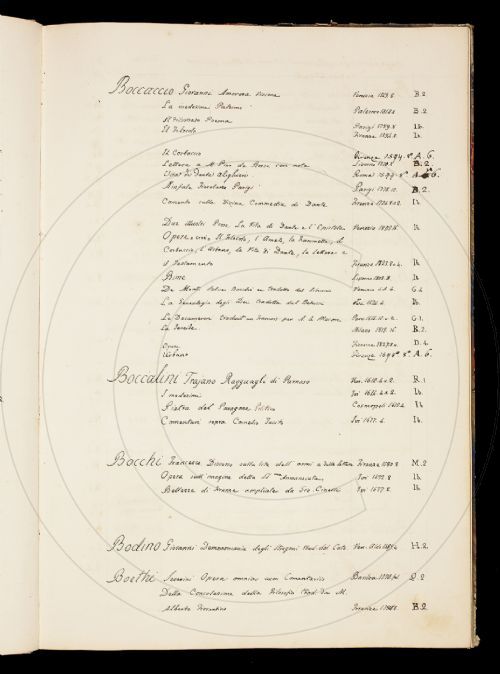 Boccaccio Giovanni Amorosa Visione Venezia B.2.
La medesima Palermo Palermo 1818.8 B.2.
Il Filostrato Poema Parigi 1789.8 Ib.
Il Filocolo Firenze 1594.8 Ib.
Il Corbaccio Firenze 1594. 8° A.6.
Lettera a M. Pino de Rossi con note B.2.
Vita di Dante Alighieri Roma 8° A.6.
Ninfale Fiesolano Parigi Parigi 1778.12. B.2.
Comento sulla Divina Commedia di Dante Firenze Ib.
Due illustri Prose, La Vita di Dante e l' Epistola Venezia Ib.
Opere, cioè, Il Filocolo, l' Ameto, la Fiammetta, il
Corbaccio, l'Urbano, la Vita di Dante, la Lettera e
il Testamento Firenze Ib.
Rime Livorno Ib.
De Monti Selve Boschi &c Tradotto dal G.4.
La Genealogia degli Dei tradotta dal Betussi Ven. Ib.
Le Decameron traduit en francois par A. le Macon G.1.
La Teseide Milano 1819.16. B.2.
Opere Firenze D.4.
Urbano Firenze 8° A.6.
Boccalini Trajano Ragguagli di Parnaso Ven. R.1
I medesimi Ivi Ib.
Pietra del Paragone Politico Cosmopoli Ib.
Comentari sopra Cornelio Tacito Ivi 1677.4. Ib.
Bocchi Francesco Discorso sulla lite dell' armi e delle lettere Firenze 1580.8 M.2
Opera sull' imagine della SS.ma Annunciata Ivi 1592.8 Ib.
Bellezze di Firenze ampliate da Gio. Cinelli Ivi 1677.8 Ib.
Bodino Giovanni Demonomania degli Stregoni trad. dal Cato Ven. Aldi H.2.
Boethi Severini Opera omnia cum Comentariis Basilea 1570.fol. Q.2
Della Consolazione della Filosofia trad. da M.
Alberto Fiorentino Firenze B.2